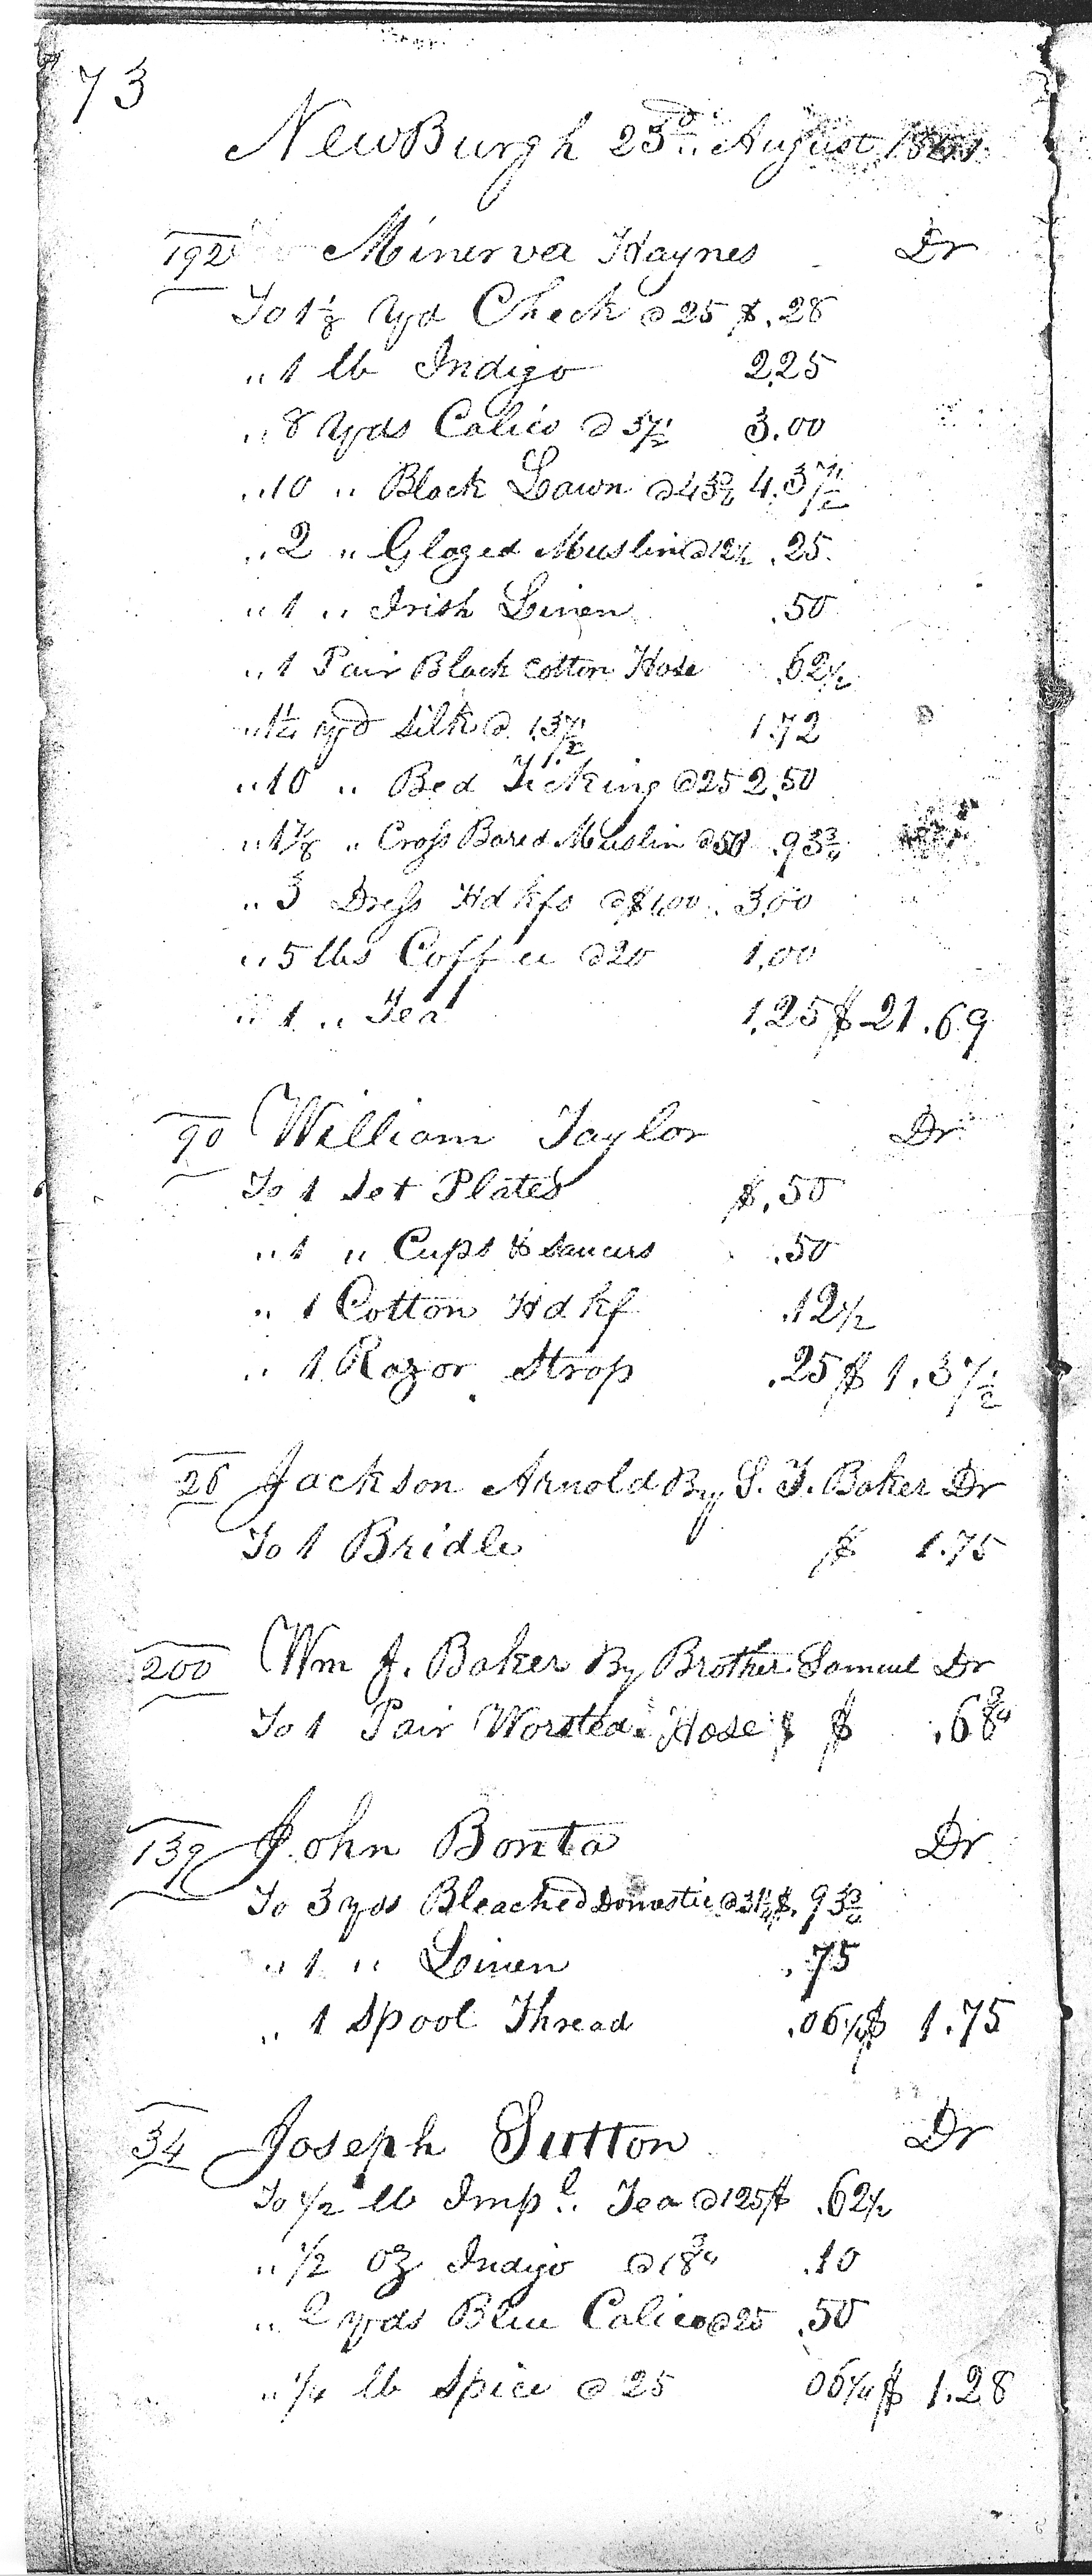 73
NewBurgh 23d August
192 Minerva Haynes Dr
To 1 1/8 yd Check @ 25 $ .28
" 1 lb Indigo 2.25
" 8 yds Calico @ 37 1/2 3.00
" 10 " Black Lawn @ 43 3/4 4.37 1/2
" 2 " Glazed Muslin @ 12 1/2 .25
" 1 " Irish Linen .50
" 1 Pair Black Cotton Hose .62 1/2
" 1 1/4 yd Silk @ 1.37 1/2 1.72
" 10 " Bed Ticking @ 25 2.50
" 1 7/8 " Cross Bared Muslin @ 50 .93 3/4
" 3 Dress Hdkfs @ $1.00 3.00
" 5 lbs Coffee @ 20 1.00
" 1 " Tea 1.25 $ 21.69
90 William Taylor Dr
To 1 Set Plates $ .50
" 1 " Cups & Saucers .50
" 1 Cotton Hdkf .12 1/2
" 1 Razor Strop .25 $ 1.37 1/2
26 Jackson Arnold By S. T. Baker Dr
To 1 Bridle $ 1.75
200 Wm J. Baker By Brother Samuel Dr
To 1 Pair Worsted Hose $ .68 3/4
139 John Bonta Dr
To 3 yds Bleached Domestic @ 31 1/4 $ .93 3/4
" 1 " Linen .75
" 1 Spool Thread .06 1/4 $ 1.75
34 Joseph Sutton Dr
To 1/2 lb Impl. Tea @ 125 $ .62 1/2
" 1/2 oz Indigo @ 18 3/4 .10
" 2 yds Blue Calico @ 25 .50
" 1/4 lb Spice @ 25 06 1/4 $ 1.28